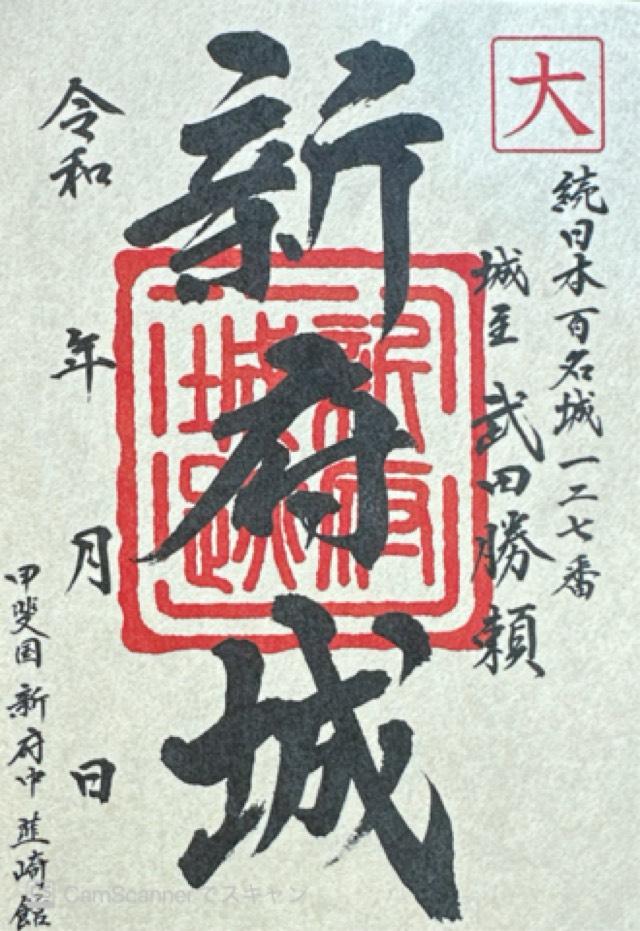 大
続日本百名城一二七番
城主 武田勝頼
新府城
新府城跡
令和 年 月 日
甲斐国 新府中 韮崎館
CamScannerでスキャン